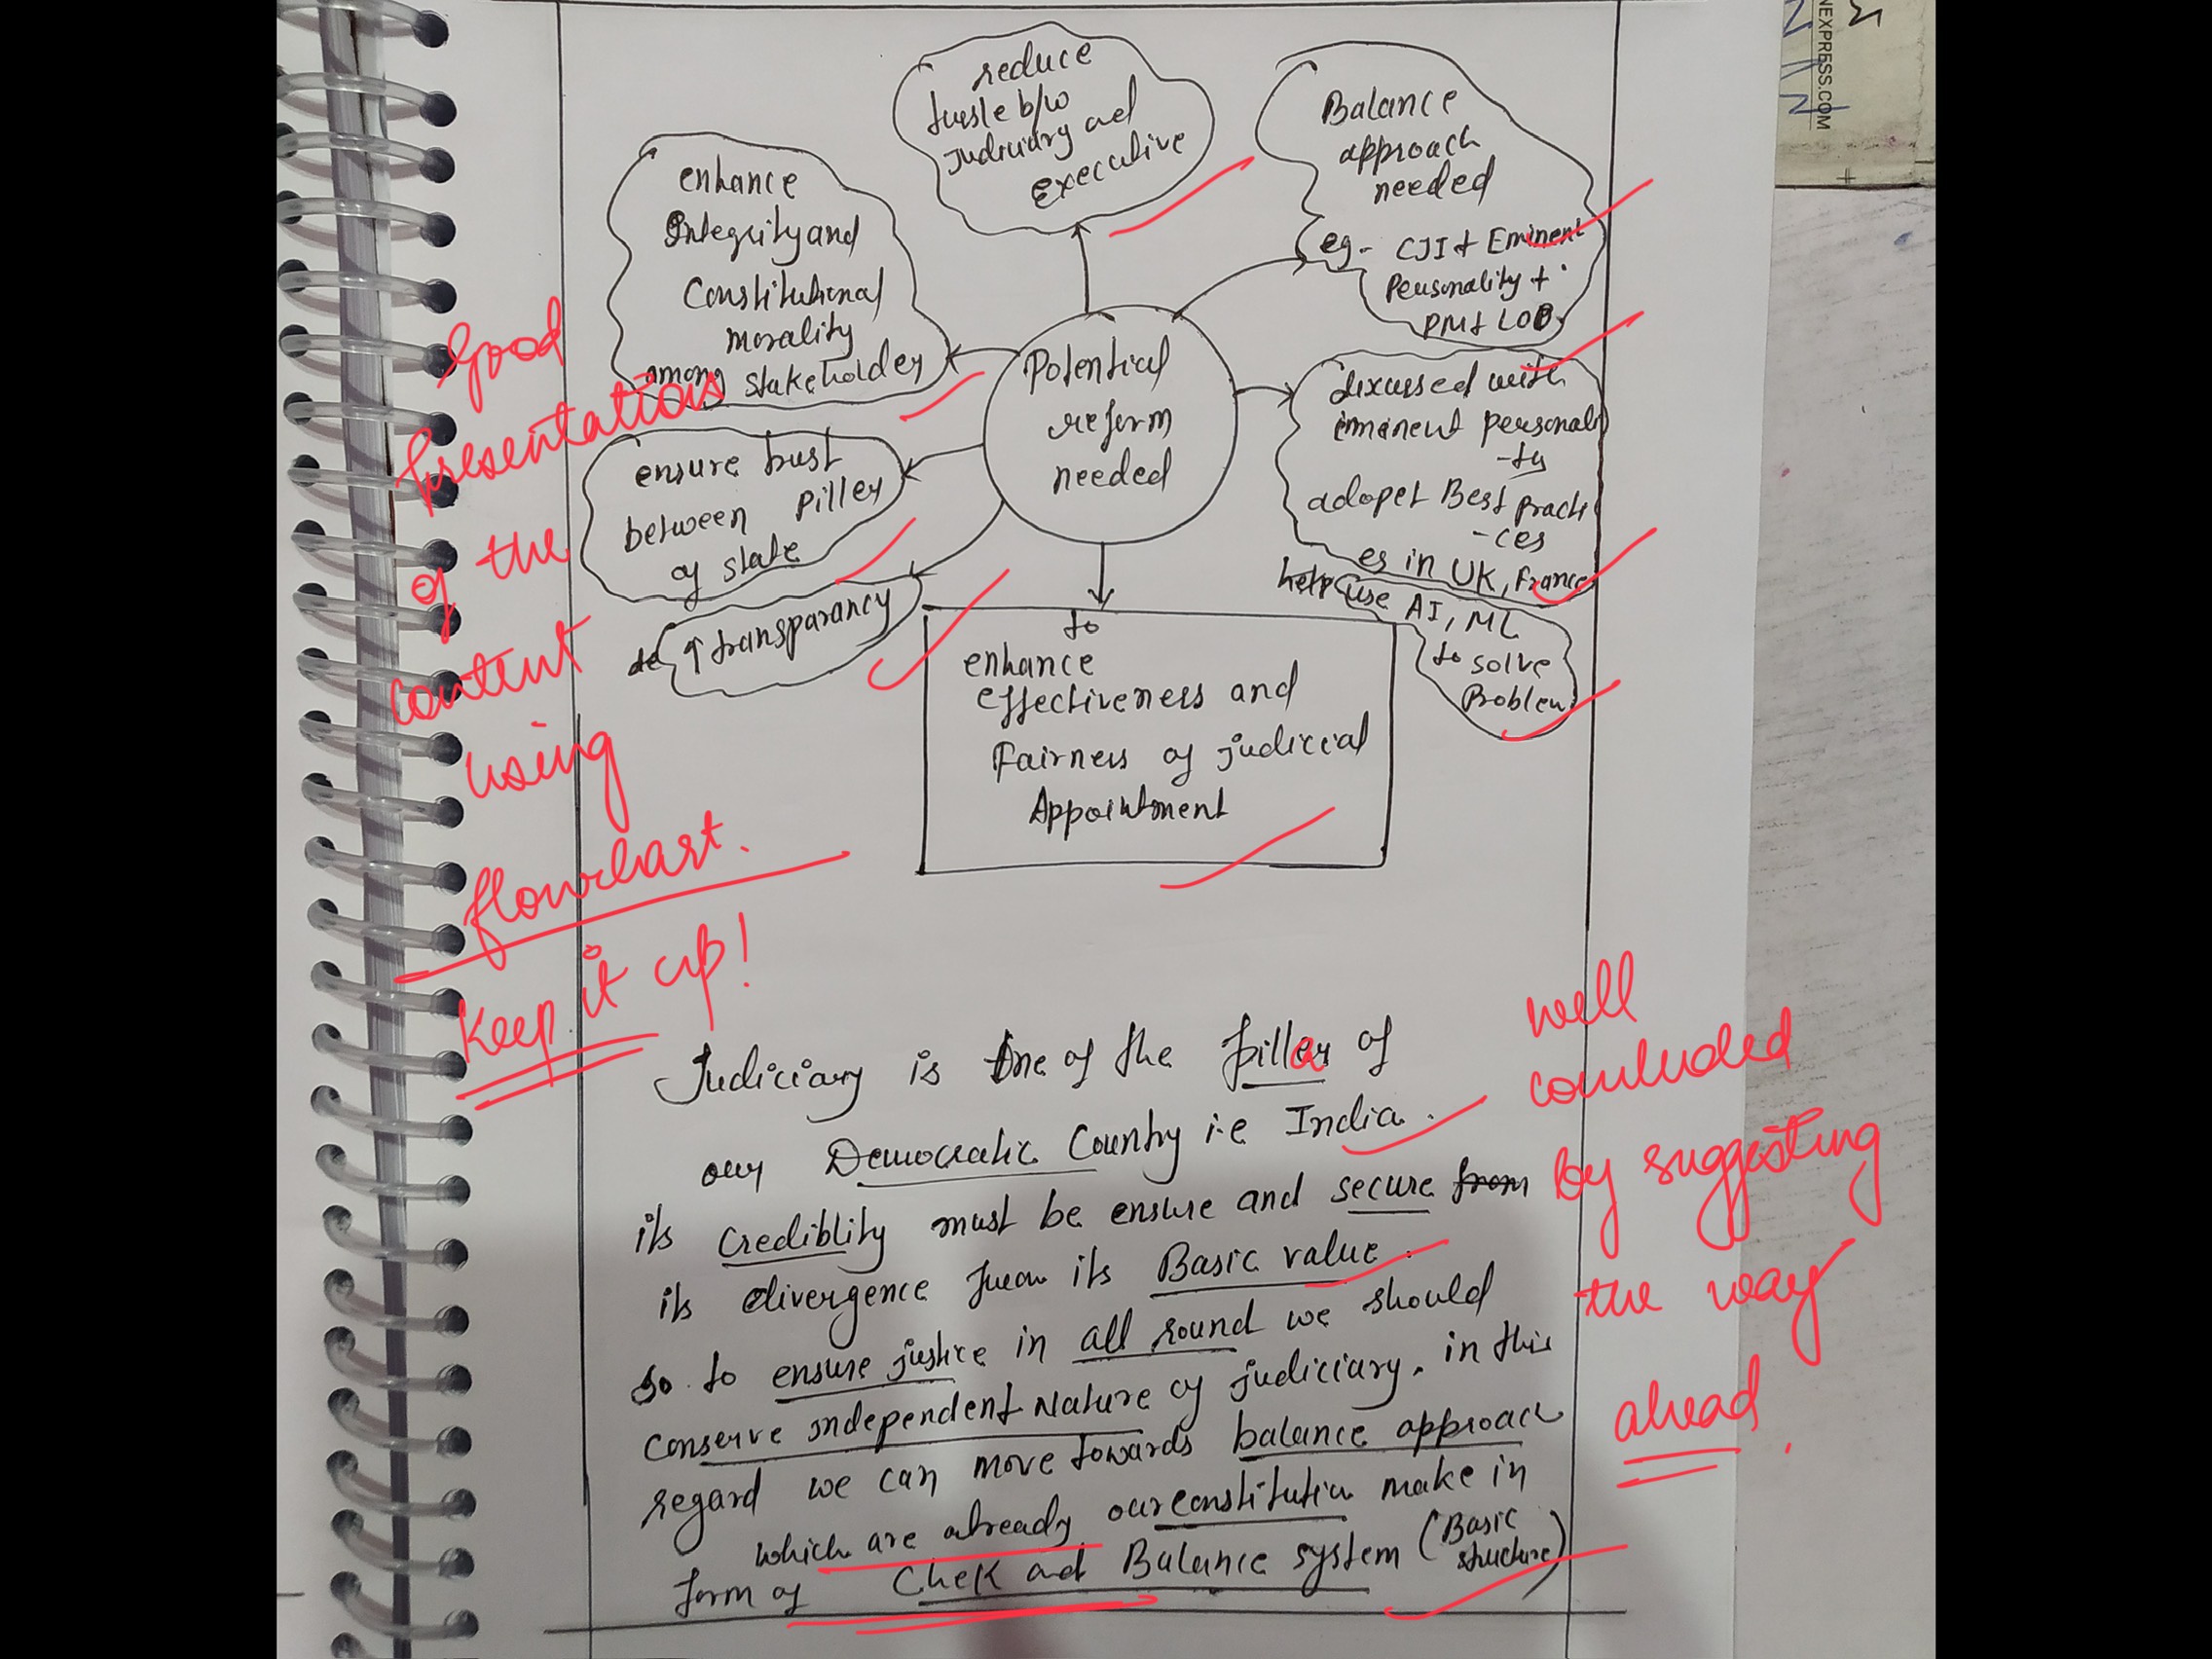 reduce
tussle b/w
judiciary and
executive
Balance
approach
needed
eg - CJI + Eminent
Personality +
PM + LOO
enhance
Integrity and
Constitutional
morality
among stakeholder
Potential
reform
needed
discussed with
imminent personali
-ty
adopet Best practi
-ces
es in UK, France
ensure trust
between Piller
of state
de ↑ transparancy
help use AI, ML
to solve
Problem
to
enhance
effectiveness and
Fairness of judicial
Appointment
Good
presentation
of the
content
using
flowchart.
Keep it up!
Judiciary is One of the pillar of
our Democratic Country i.e India.
its Crediblity must be ensure and secure from
its divergence from its Basic value.
so to ensure justice in all round we should
conserve independent Nature of judiciary. in this
regard we can move towards balance approach
which are already our constitution make in
form of Chek and Balance system (Basic
structure)
well
concluded
by suggesting
the way
ahead.
NEXPRESS.COM